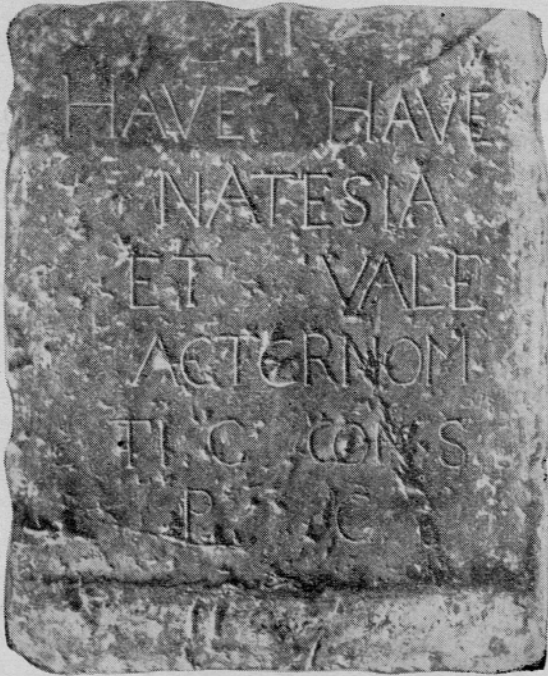 HAVE HAVE
NATESIA
ET VALE
AETERNOM
TI C CONS
P C